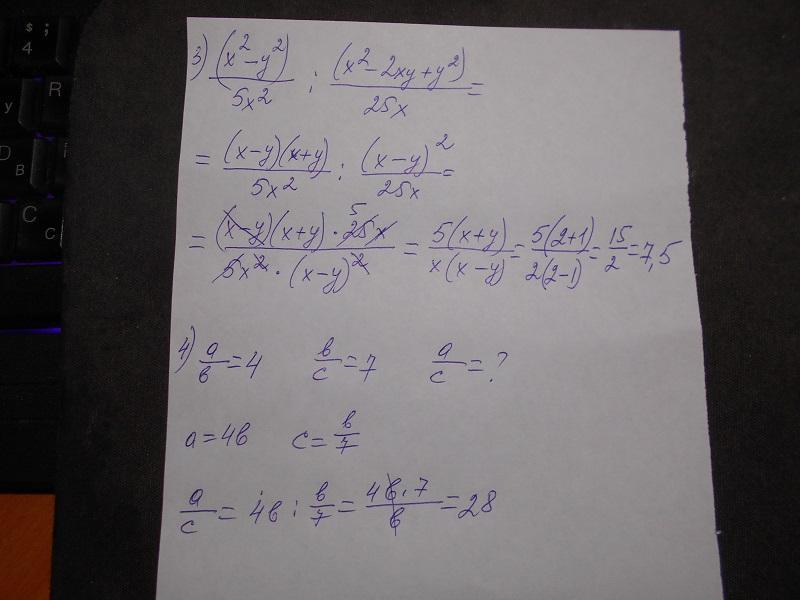 $ ;
4
R
y
D
B
C
C
3) (x²-y²)/5x² : (x²-2xy+y²)/25x =
= (x-y)(x+y)/5x² : (x-y)²/25x =
= (x-y)(x+y)·25x/5x²·(x-y)² 5 = 5(x+y)/x(x-y) = 5(2+1)/2(2-1) = 15/2 = 7,5
4) a/в = 4 в/c = 7 a/c = ?
a = 4в c = в/7
a/c = 4в : в/7 = 4в·7/в = 28